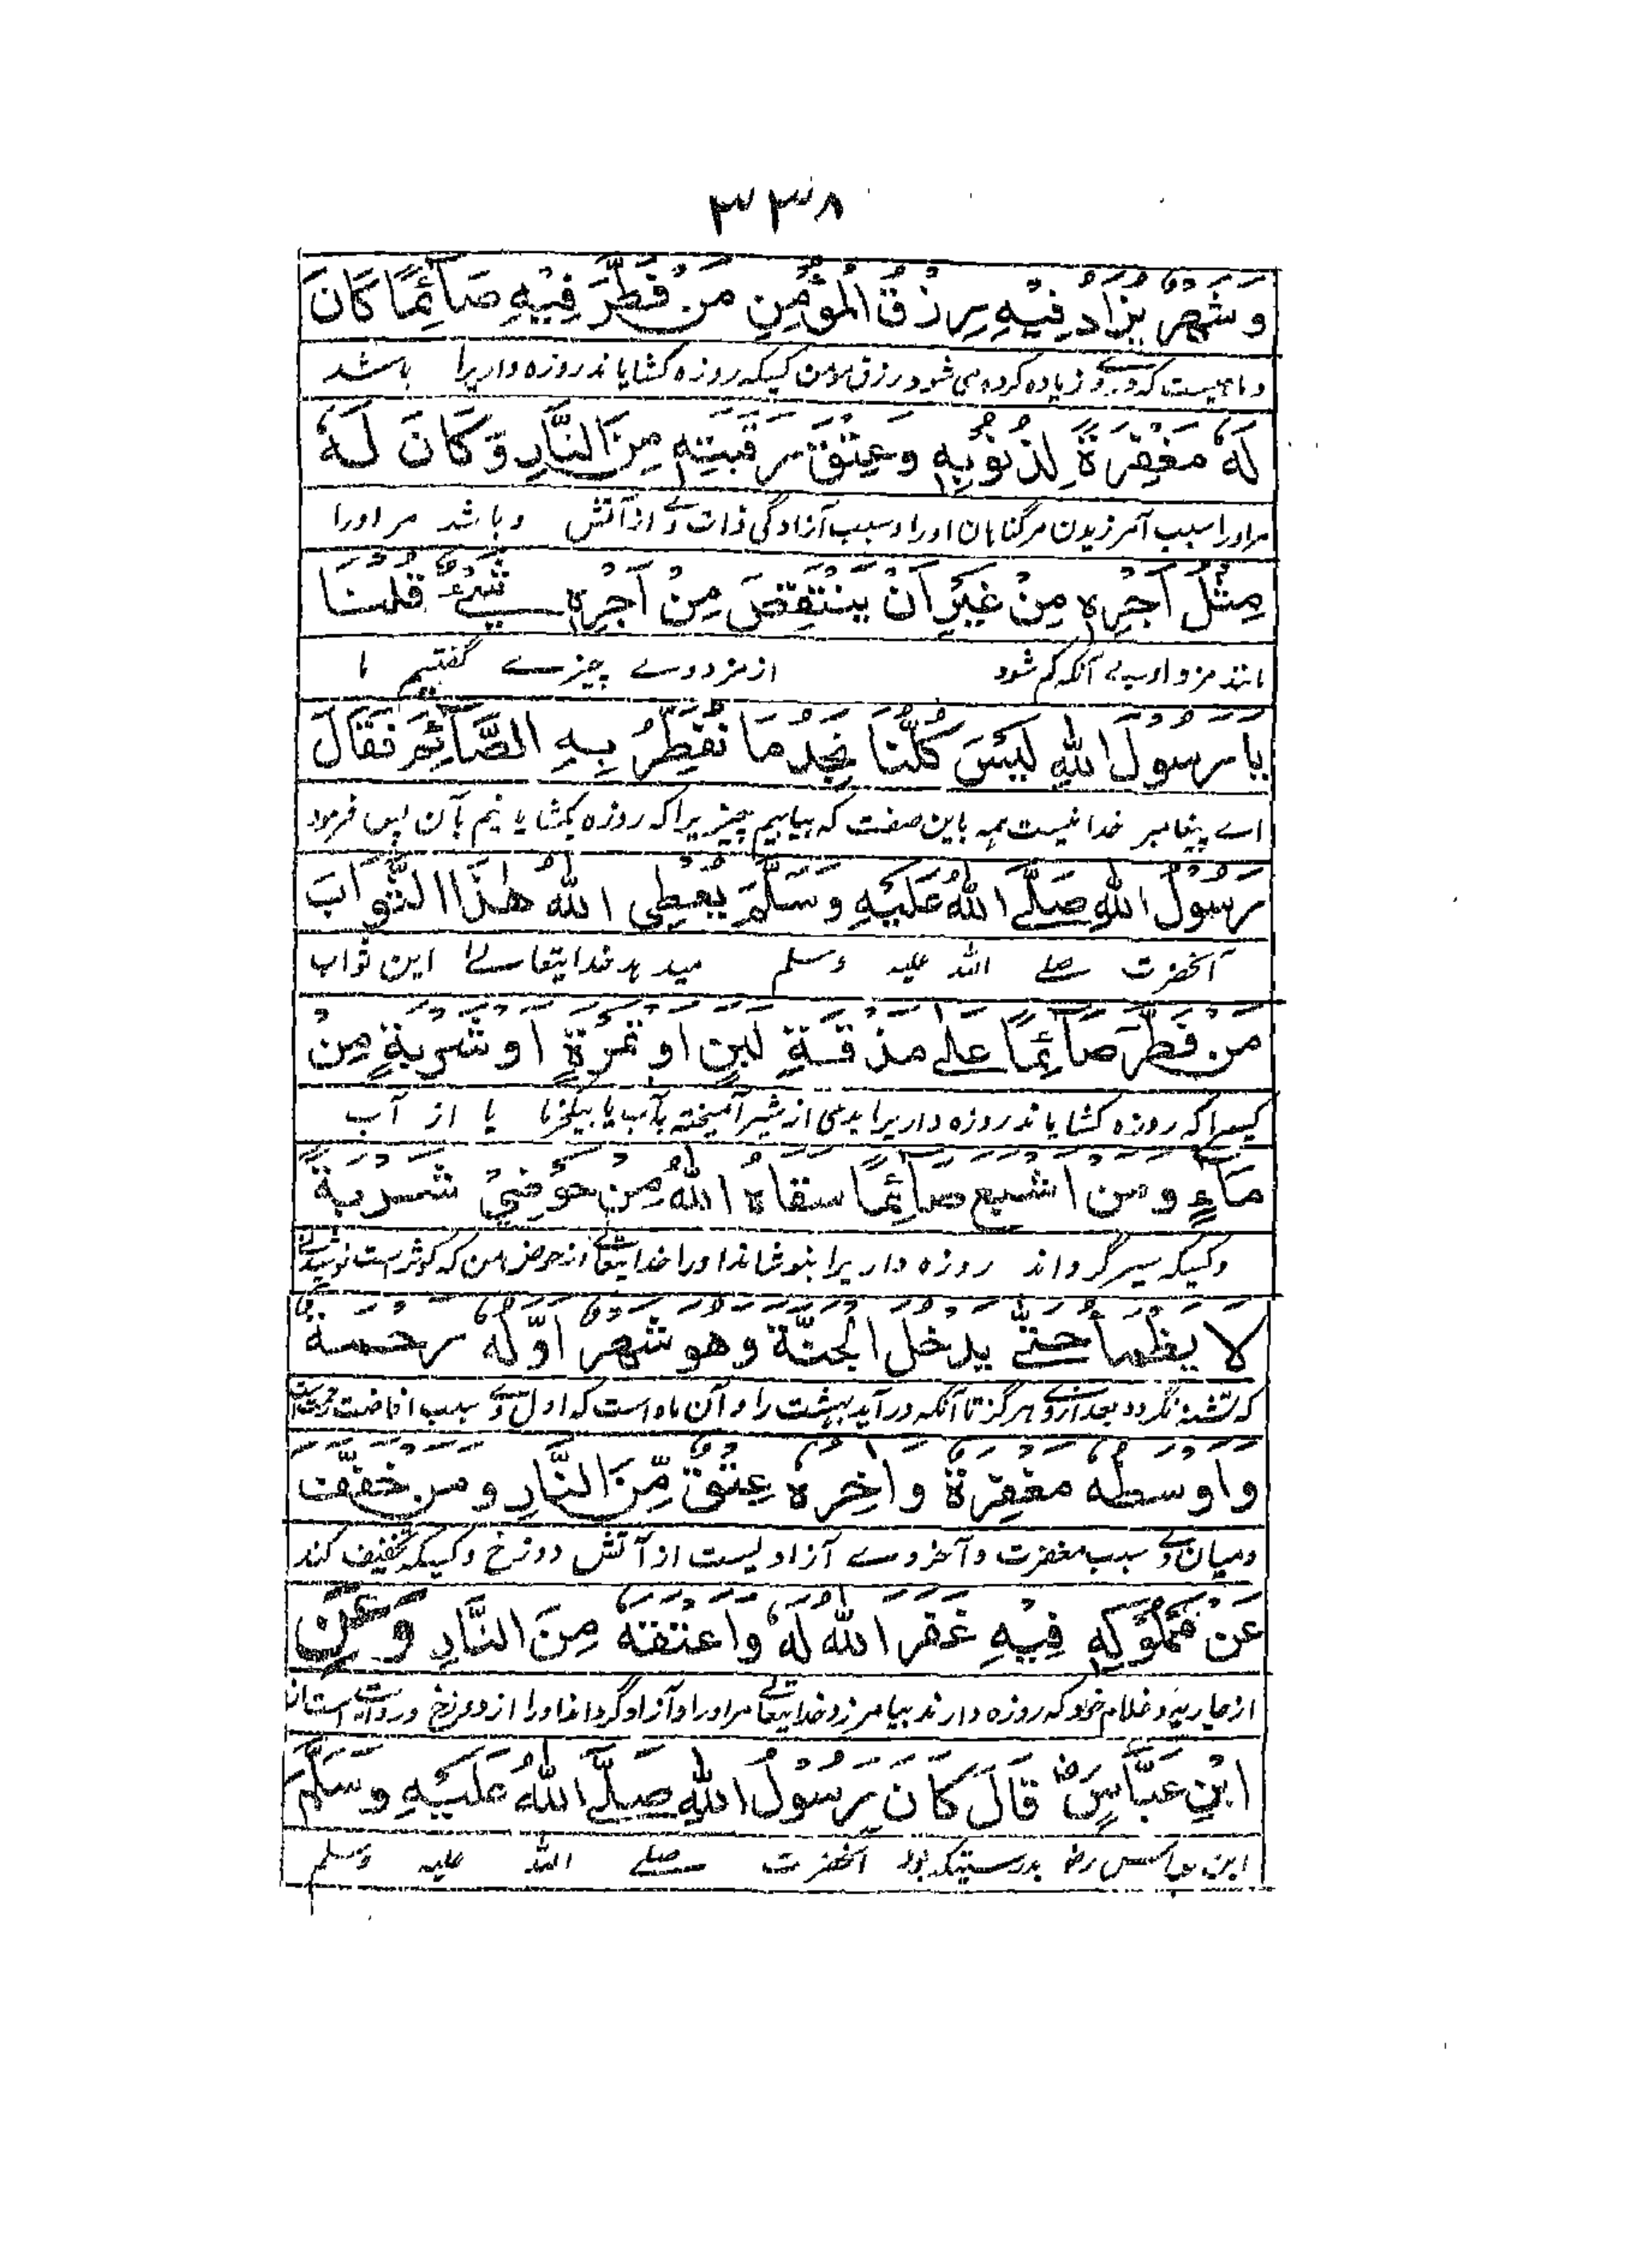 ٣٣٨
وَشَهْرٌ يُزَادُ فِيْهِ رِزْقُ الْمُؤْمِنِ مَنْ فَطَّرَ فِيْهِ صَآئِمًا كَانَ
و ماهیست که در وے زیاده کرده می شود رزق مومن کسیکه روزه کشایاند روزه داریرا باشد
لَهٗ مَغْفِرَةً لِذُنُوْبِهٖ وَعِتْقَ رَقَبَتِهٖ مِنَ النَّارِ وَكَانَ لَهٗ
مراورا سبب آمرزیدن مر گناهان اورا و سبب آزادگی ذات وے از آتش و باشد مراورا
مِثْلُ اَجْرِهٖ مِنْ غَيْرِ اَنْ يَنْتَقِصَ مِنْ اَجْرِهٖ شَيْءٌ قُلْنَا
مانند مزد او بے آنکه کم شود از مزد وے چیزے گفتیم ما
يَا رَسُوْلَ اللهِ لَيْسَ كُلُّنَا نَجِدُ مَا نُفَطِّرُ بِهِ الصَّآئِمَ فَقَالَ
اے پیغامبر خدا نیست همه باین صفت که بیابیم چیزیرا که روزه بکشایانیم بآن پس فرمود
رَسُوْلُ اللهِ صَلَّے اللهُ عَلَيْهِ وَسَلَّمَ يُعْطِی اللهُ هٰذَا الثَّوَابَ
آنحضرت صلے الله علیه وسلم میدهد خدایتعالے این ثواب
مَنْ فَطَّرَ صَآئِمًا عَلٰے مَذْقَةِ لَبَنٍ اَوْ تَمْرَةٍ اَوْ شَرْبَةٍ مِنْ
کسیرا که روزه کشایاند روزه داریرا بدمی از شیر آمیخته بآب یا بیکخرما یا از آب
مَآءٍ وَمَنْ اَشْبَعَ صَآئِمًا سَقَاهُ اللهُ مِنْ حَوْضِیْ شَرْبَةً
وکسیکه سیر گرداند روزه داریرا بنوشاند اورا خدایتعالے از حوض من که کوثر است
لَا يَظْمَأُ حَتّٰے يَدْخُلَ الْجَنَّةَ وَهُوَ شَهْرٌ اَوَّلُهٗ رَحْمَةٌ
که تشنه نگردد بعد ازوے هرگز تا آنکه در آید بهشت را و آن ماه است که اول وے سبب افاضت رحمت است
وَاَوْسَطُهٗ مَغْفِرَةٌ وَاٰخِرُهٗ عِتْقٌ مِّنَ النَّارِ وَمَنْ خَفَّفَ
و میان وے سبب مغفرت و آخر وے آزادیست از آتش دوزخ وکسیکه تخفیف کند
عَنْ مَمْلُوْكِهٖ فِيْهِ غَفَرَ اللهُ لَهٗ وَاَعْتَقَهٗ مِنَ النَّارِ وَعَنِ
از جاریه و غلام خود که روزه دارند بیامرزد خدایتعالے مراورا و آزاد گرداند اورا از دوزخ و روایت است از
ابْنِ عَبَّاسٍ رض قَالَ كَانَ رَسُوْلُ اللهِ صَلَّے اللهُ عَلَيْهِ وَسَلَّمَ
ابن عباس رض بدرستیکه بود آنحضرت صلے الله علیه وسلم